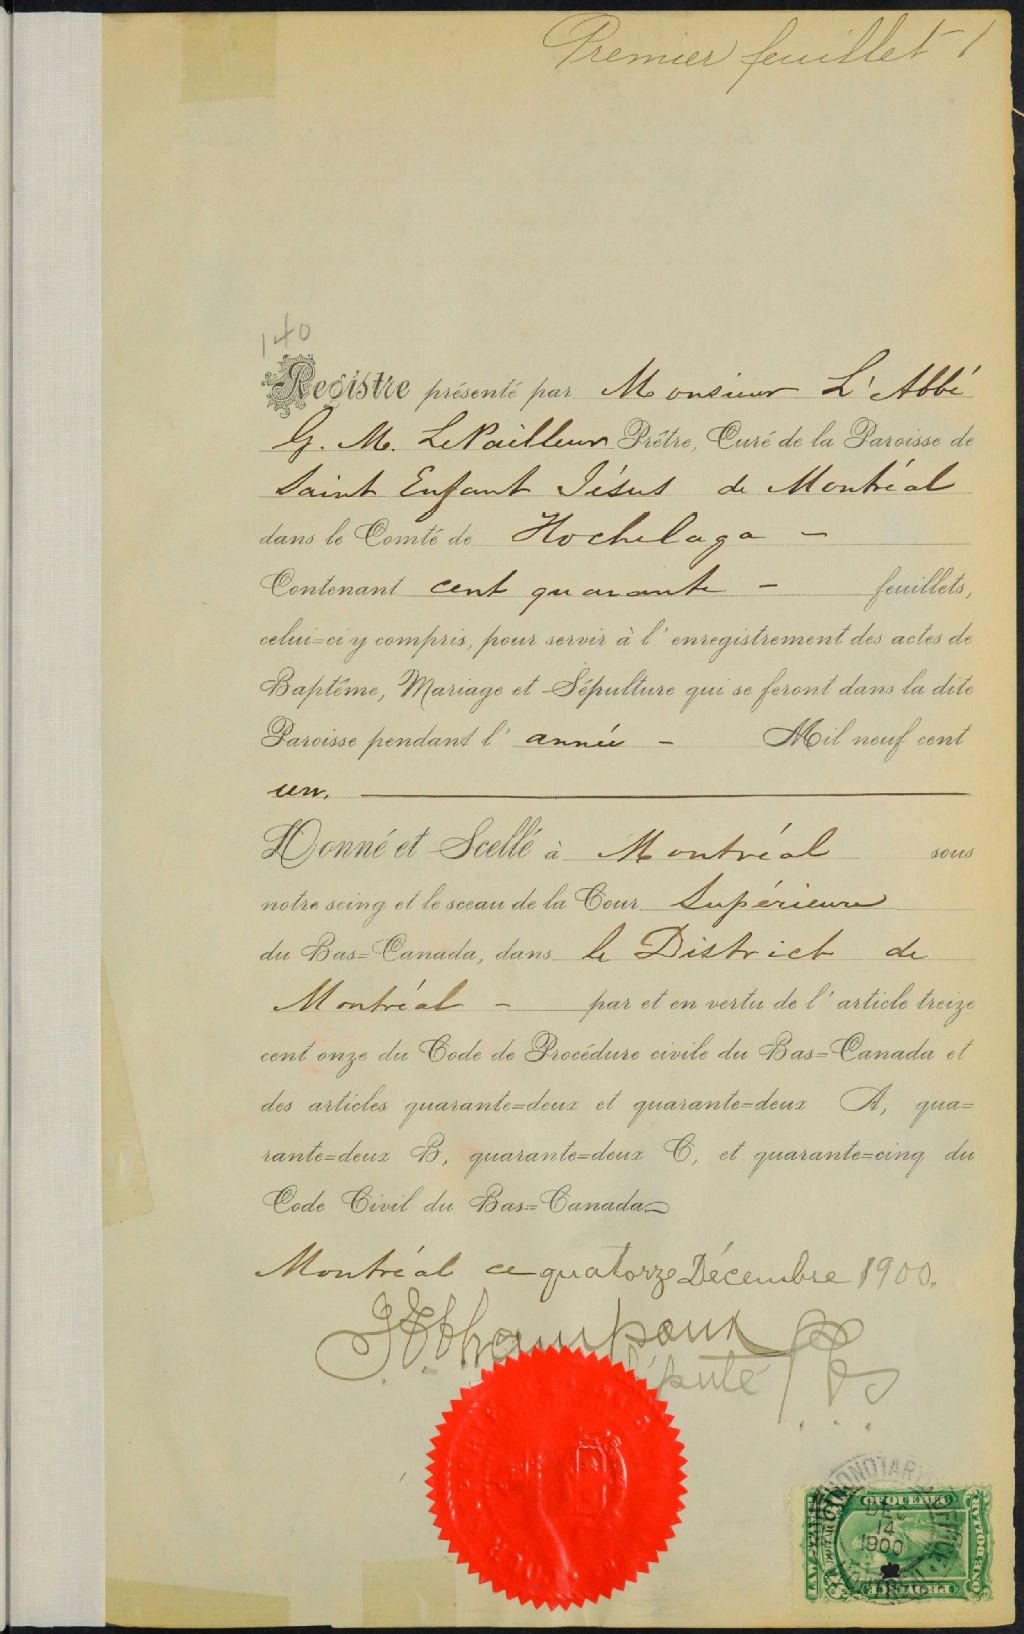 Premier feuillet 1
140
Registre présenté par Monsieur L'Abbé
G. M. LePailleur Prêtre, Curé de la Paroisse de
Saint Enfant Jésus de Montréal
dans le Comté de Hochelaga –
Contenant cent quarante – feuillets,
celui=ci y compris, pour servir à l'enregistrement des actes de
Baptême, Mariage et Sépulture qui se feront dans la dite
Paroisse pendant l'année – Mil neuf cent
un.
Donné et Scellé à Montréal sous
notre seing et le sceau de la Cour Supérieure
du Bas=Canada, dans le District de
Montréal – par et en vertu de l'article treize
cent onze du Code de Procédure civile du Bas=Canada et
des articles quarante=deux et quarante=deux A, qua=
rante=deux B, quarante=deux C, et quarante=cinq du
Code Civil du Bas=Canada
Montréal ce quatorze Décembre 1900.
Député
DEC
14
1900
QUEBEC
ONE DOLLAR
PROVINCE